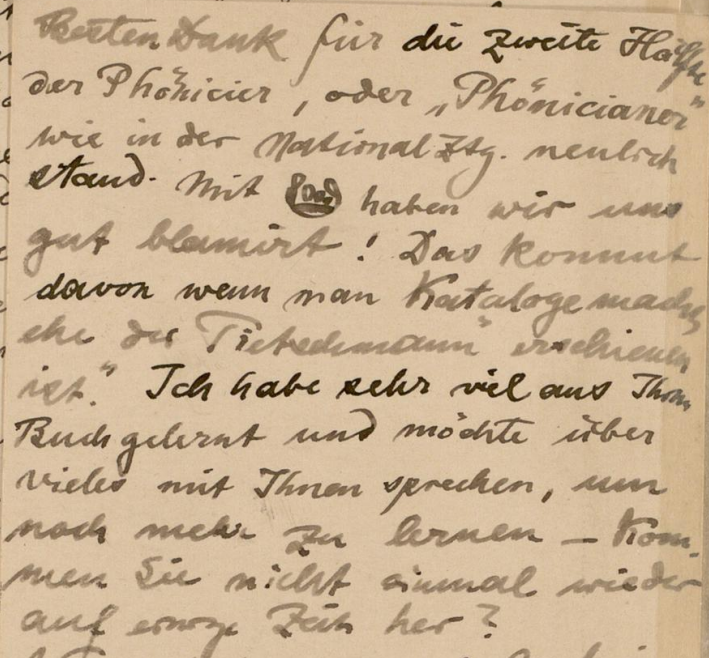 Besten Dank für die zweite Hälfte
der Phönicier, oder „Phönicianer"
wie in der National Ztg. neulich
stand. Mit haben wir uns
gut blamirt! Das kommt
davon wenn man Kataloge mache
ehe der „Pietschmann" erschienen
ist." Ich habe sehr viel aus Ihrem
Buch gelernt und möchte über
vieles mit Ihnen sprechen, um
noch mehr zu lernen – Kom-
men Sie nicht einmal wieder
auf einige Zeit her?